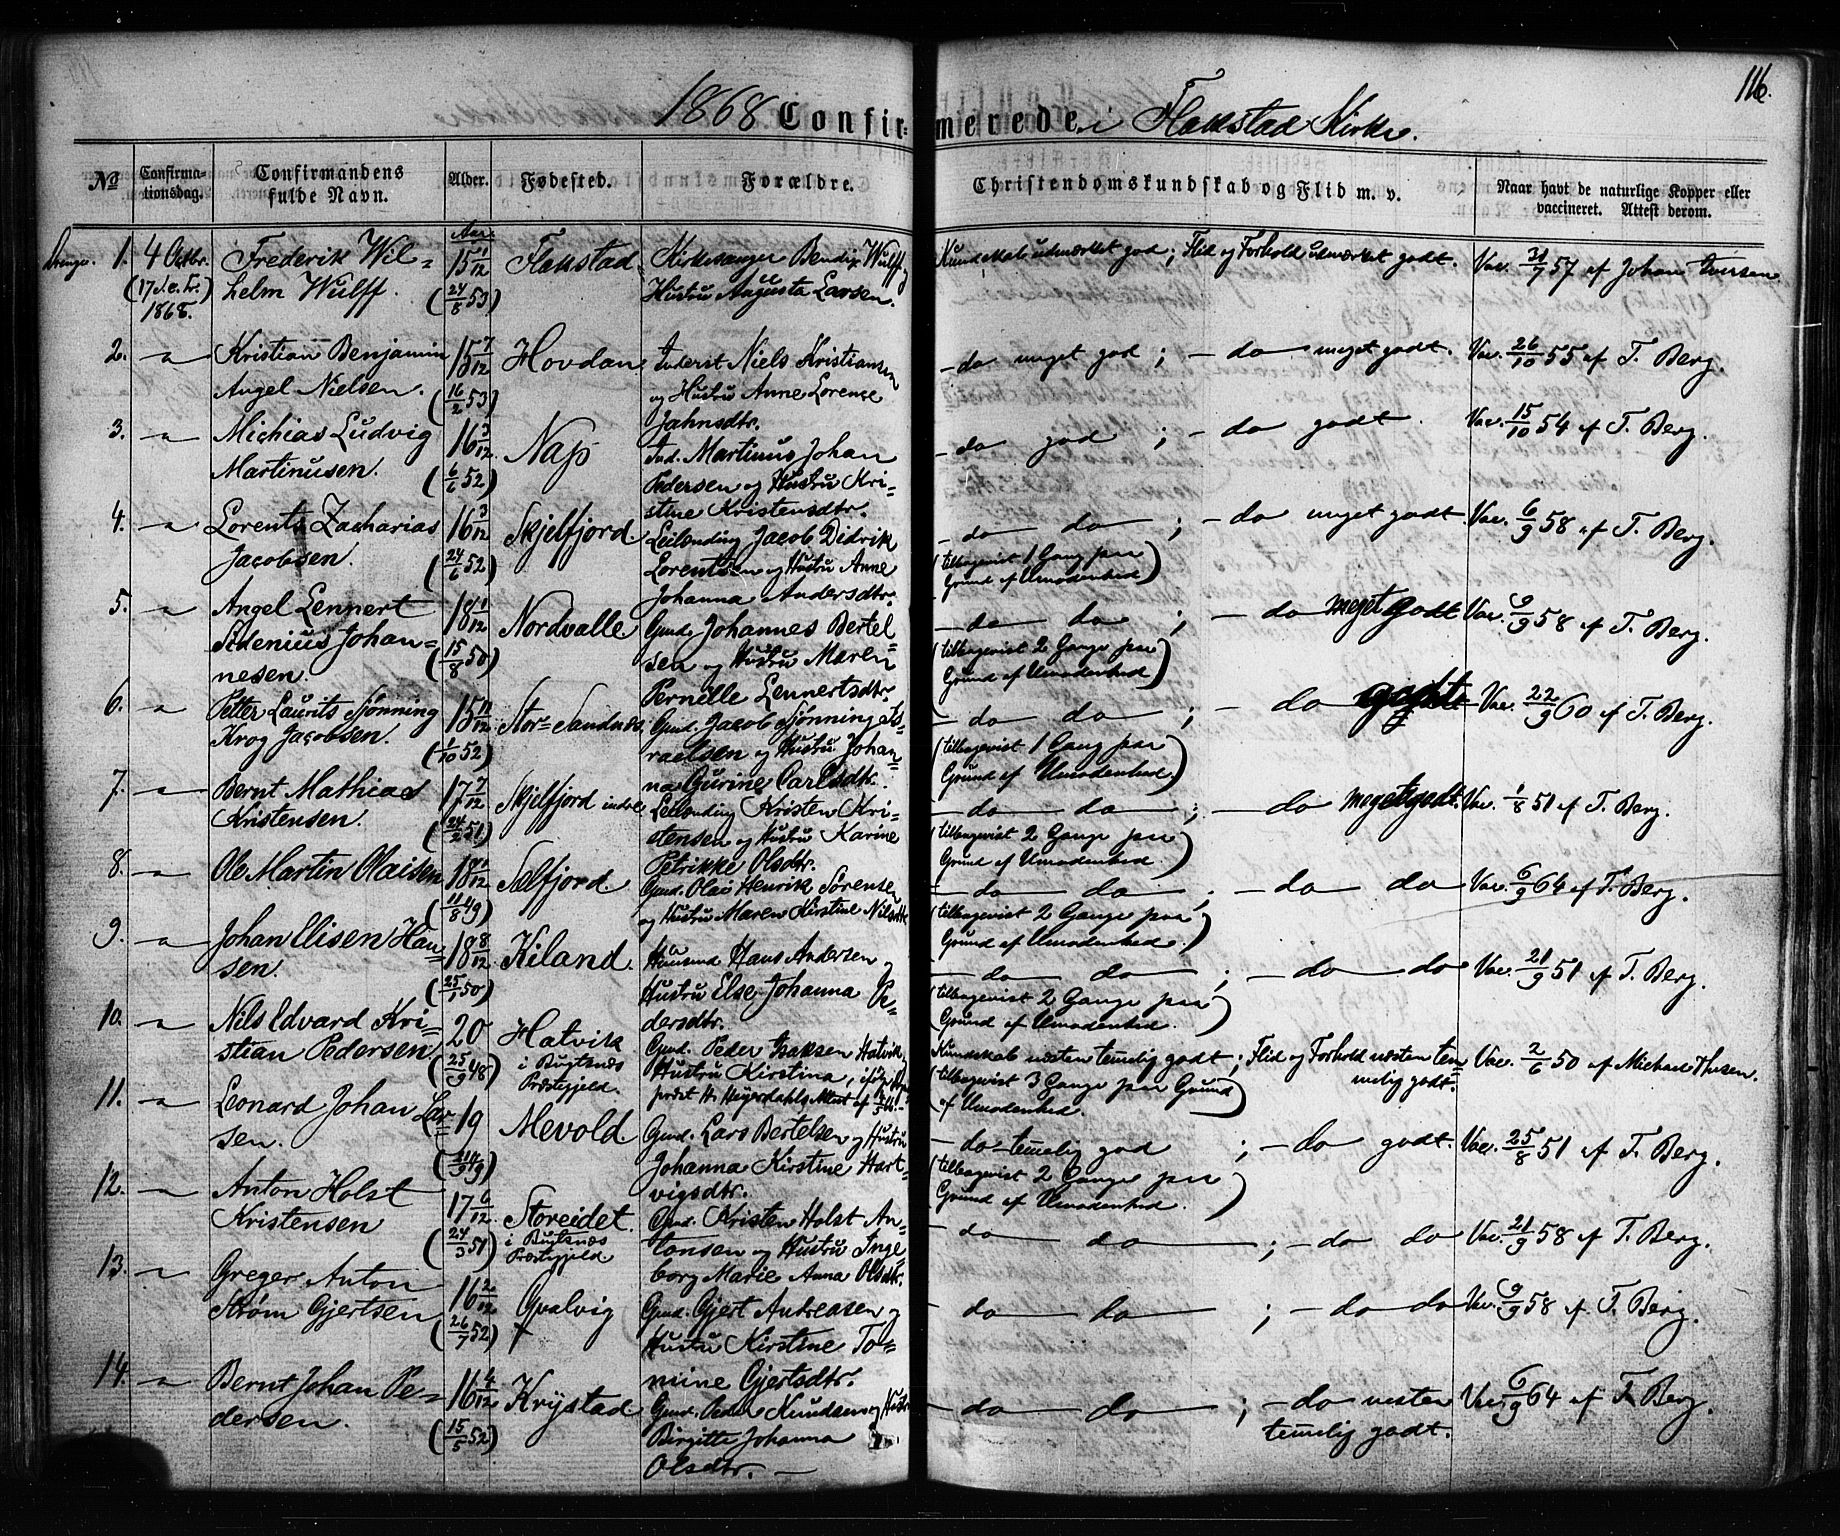 116.
1868 Confirmerede i Flakstad Kirke.
No Confirmationsdag. Confirmandens fulde Navn. Alder. Fødested. Forældre. Christendomskundskab og Flid m. v. Naar havt de naturlige Kopper eller vaccineret. Attest derom.
Drenge. 1. 4 Octbr. Frederik Wil= Aar. 15 1/12 Flakstad Kirkesanger Bendix Wulff og Kundskab udmærket god; Flid og Forhold udmærket godt. Vac. 31/7 57 af Johan Iversen
(17 s. e. Tr.) 1868. helm Wulff. (24/8 53) Hustru Augusta Larsen.
2. — Kristian Benjamin 15 7/12 Hovdan Inderst Niels Kristiansen — do meget god; — do meget godt. Vac. 26/10 55 af T. Berg.
Angel Nielsen. (16/2 53) og Hustru Anne Lorence
Jahnsdtr.
3. — Michias Ludvig 16 3/12 Nap Ind. Martinus Johan — do god; — do godt. Vac. 15/10 54 af T. Berg.
Martinusen. (6/6 52) Pedersen og Hustru Kri=
stine Kristensdtr.
4. — Lorents Zacharias 16 3/12 Skjelfjord Leilending Jacob Didrik — do do; — do meget godt. Vac. 6/9 58 af T. Berg.
Jacobsen. (24/6 52) Lorentsen og Hustru Anne (tilbagevist 1 Gang paa
Johanna Andersdtr. Grund af Umodenhed)
5. — Angel Lennert 18 1/12 Nordvalle Gmd. Johannes Bertel — do do; — do meget godt Vac. 9/9 58 af T. Berg.
Stdenius Johan= (15/8 50) sen og Hustru Maren (tilbagevist 2 Gange paa
nesen. Pernille Lennertsdtr. Grund af Umodenhed)
6. — Petter Laurits Sjønning 15 11/12 Stor=Sandnes Gmd. Jacob Sjønning Is= — do do; — do godt Vac. 22/9 60 af T. Berg.
Krog Jacobsen. (1/10 52) raelsen og Hustru Johan= (tilbagevist 1 Gang paa
na Gurine Carlsdtr. Grund af Umodenhed.)
7. — Bernt Mathias 17 7/12 Skjelfjord indre Leilending Kristen Kri= — do do; — do meget godt. Vac. 1/8 51 af T. Berg.
Kristensen. (24/2 51) stensen og Hustru Karine (tilbagevist 2 Gange paa
Petrikke Olsdtr. Grund af Umodenhed.)
8. — Ole Martin Olaisen 18 11/12 Selfjord. Gmd. Olai Henrik Sørensen — do do; — do do Vac. 6/9 64 af T. Berg.
(11/8 49) og Hustru Maren Kirstine Nilsdtr. (tilbagevist 2 Gange paa
Grund af Umodenhed.)
9. — Johan Elisen Han= 18 8/12 Kiland. Huusmd Hans Andersen og — do do; — do do Vac. 21/9 51 af T. Berg.
sen. (25/1 50) Hustru Else Johanna Pe= (tilbagevist 2 Gange paa
dersdtr. Grund af Umodenhed.)
10. — Nils Edvard Kri= 20 Hatvik Gmd. Peder Isaksen Hatvik og Kundskab næsten temelig godt; Flid og Forhold næsten tem= Vac. 2/6 50 af Michael Thesen.
stian Pedersen (25/9 48) i Bugtsnæs Hustru Kirstina, ifølge (tilbagevist 3 Gange paa Grund melig godt.
Præstegjeld. Hr. Heyerdahls Attest af af Umodenhed.)
11. — Leonard Johan Lar= 19 Mevold Gmd. Lars Bertelsen og Hustru — do temelig god; — do godt. Vac. 25/8 51 af T. Berg.
sen. (11/9 49) Johanna Kirstine Hart= (tilbagevist 2 Gange paa
vigsdtr. Grund af Umodenhed.)
12. — Anton Holst 17 6/12 Storeidet. Gmd. Kristen Holst An= — do do; — do do Vac. 21/9 58 af T. Berg.
Kristensen (24/3 51) i Bugtsnæs tonsen og Hustru Inge=
Præstegjeld. borg Marie Anna Olsdtr.
13. — Greger Anton 16 2/12 Qvalvig Gmd. Gjert Andreasen og — do do; — do do Vac. 9/9 58 af T. Berg.
Strøm Gjertsen (26/7 52) Hustru Kirstine To=
mine Gjertsdtr.
14. — Bernt Johan Pe= 16 4/12 Krystad Gmd. Peder Knudsen og Hustru — do do; — do næsten Vac. 6/9 64 af T. Berg.
dersen. (15/5 52) Birgitte Johanna temelig godt.
Olsdtr. —